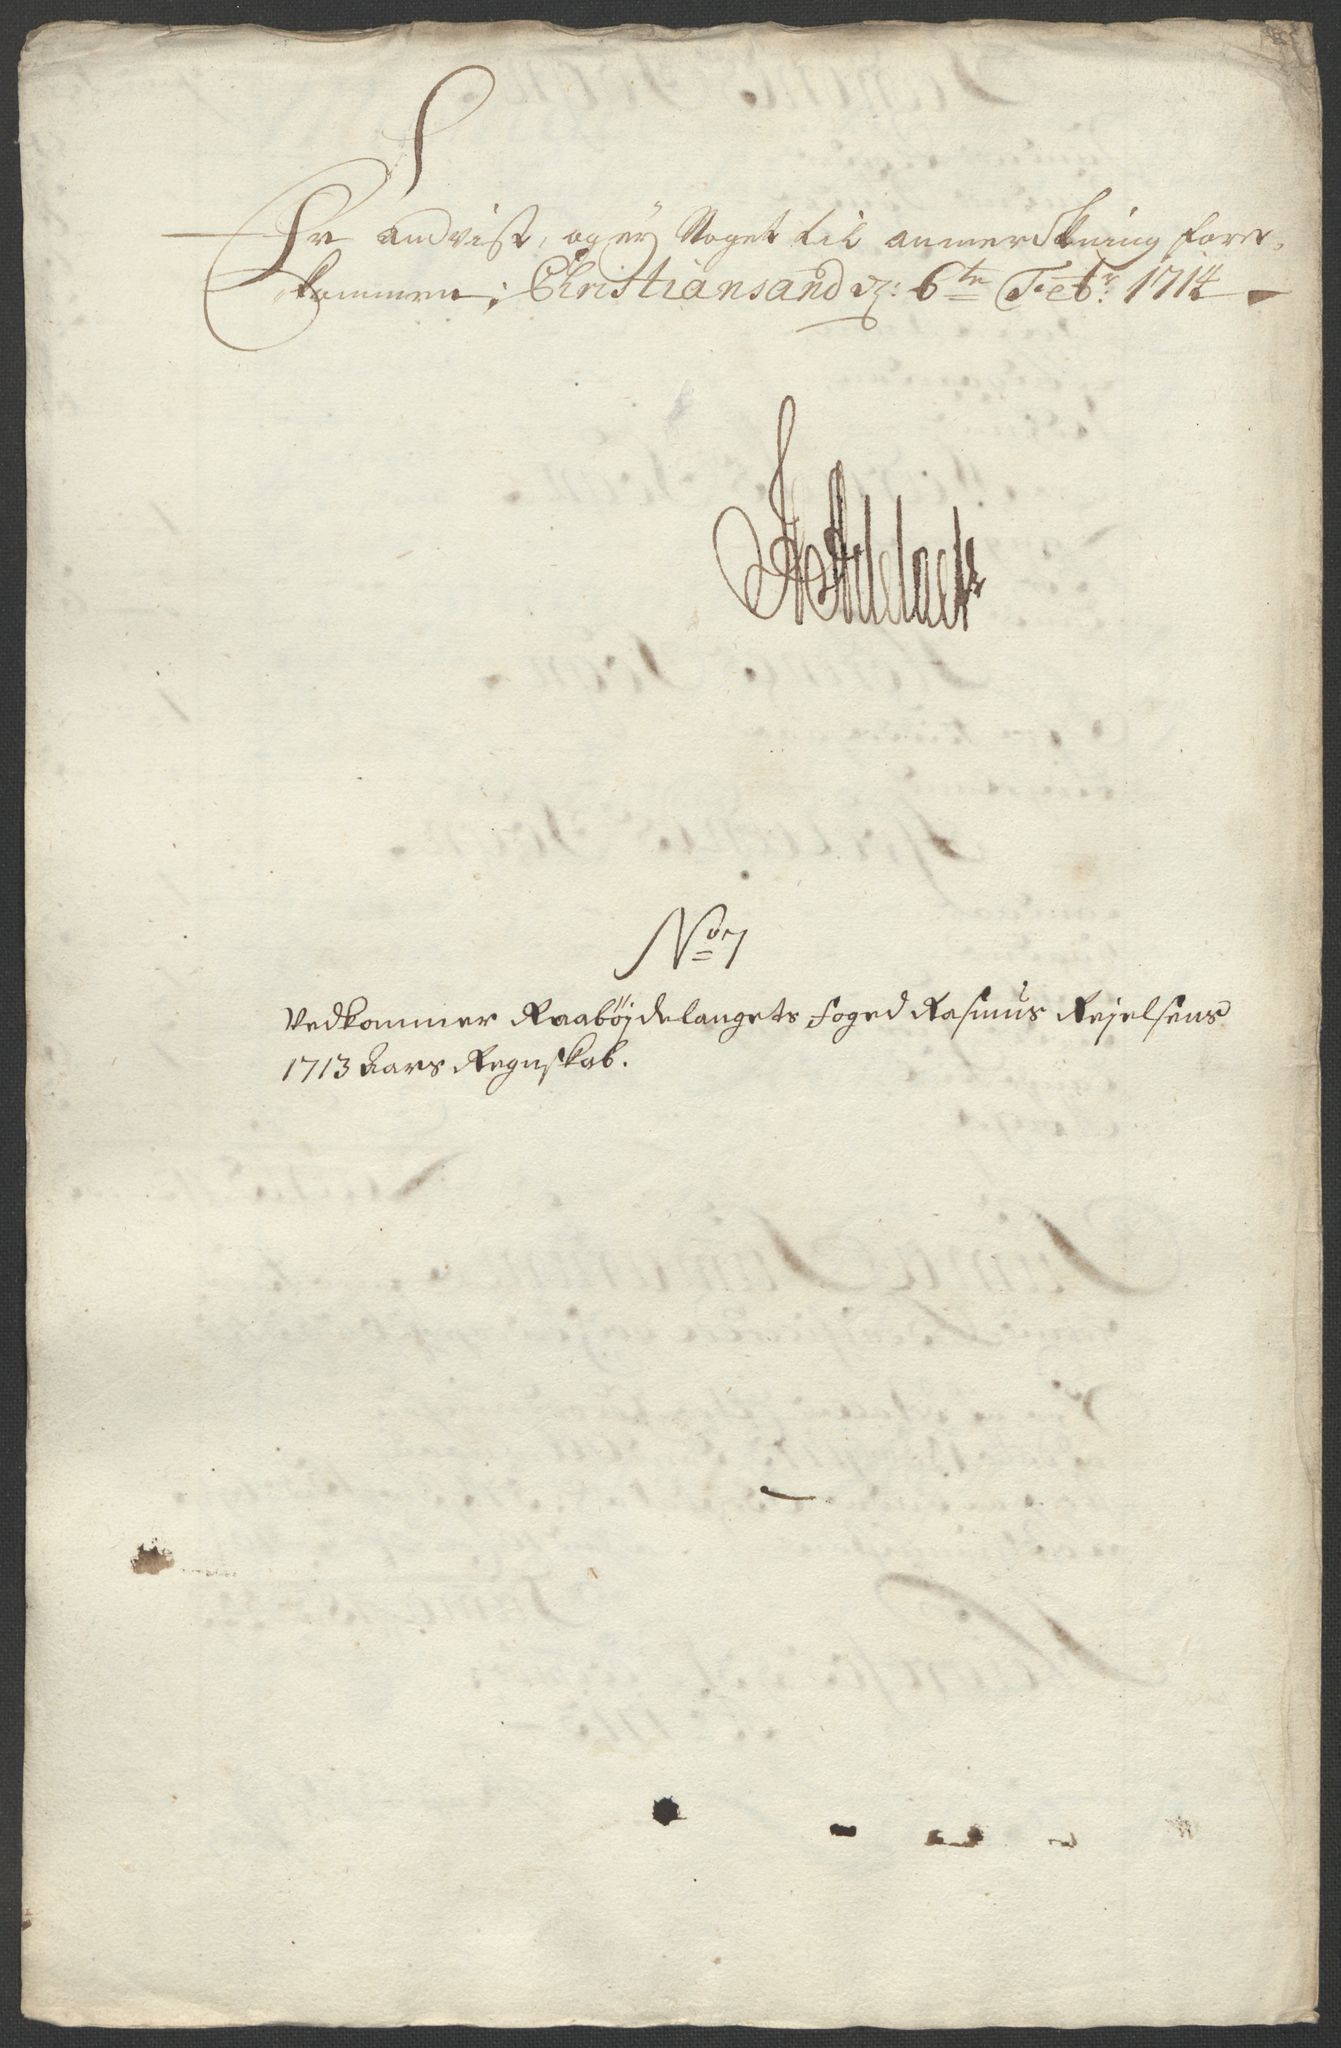 Er andvist, og ey Noget til anmerkning fore-
kommen; Christiansand d: 6te Febr: 1714
No 7
Vedkommer Raabøjdelaugets foged Rasmus Rejelsens
1713 Aars Regnskab.